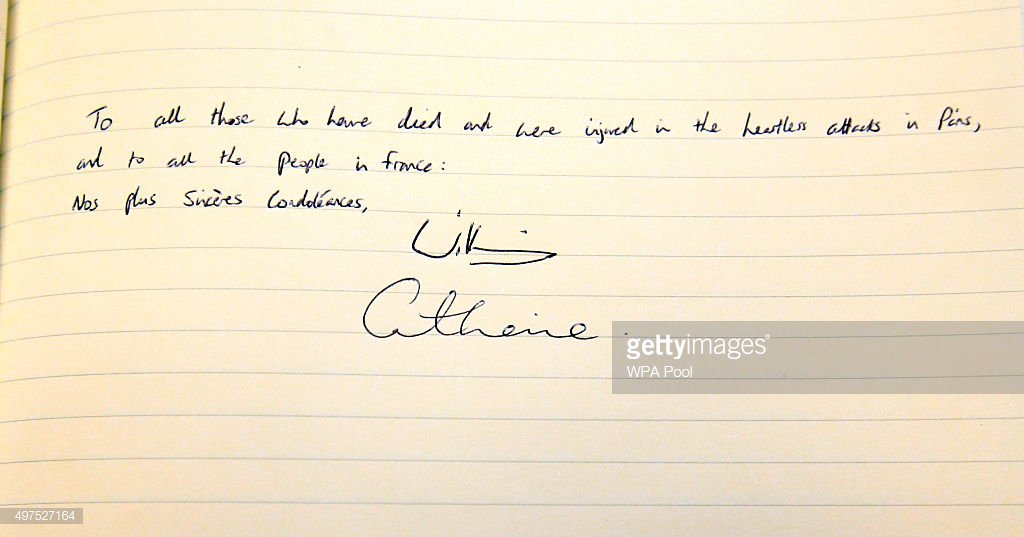 To all those who have died and were injured in the heartless attacks in Paris,
and to all the people in France:
Nos plus sincères condoléances,
William
Catherine
gettyimages
WPA Pool
497527164